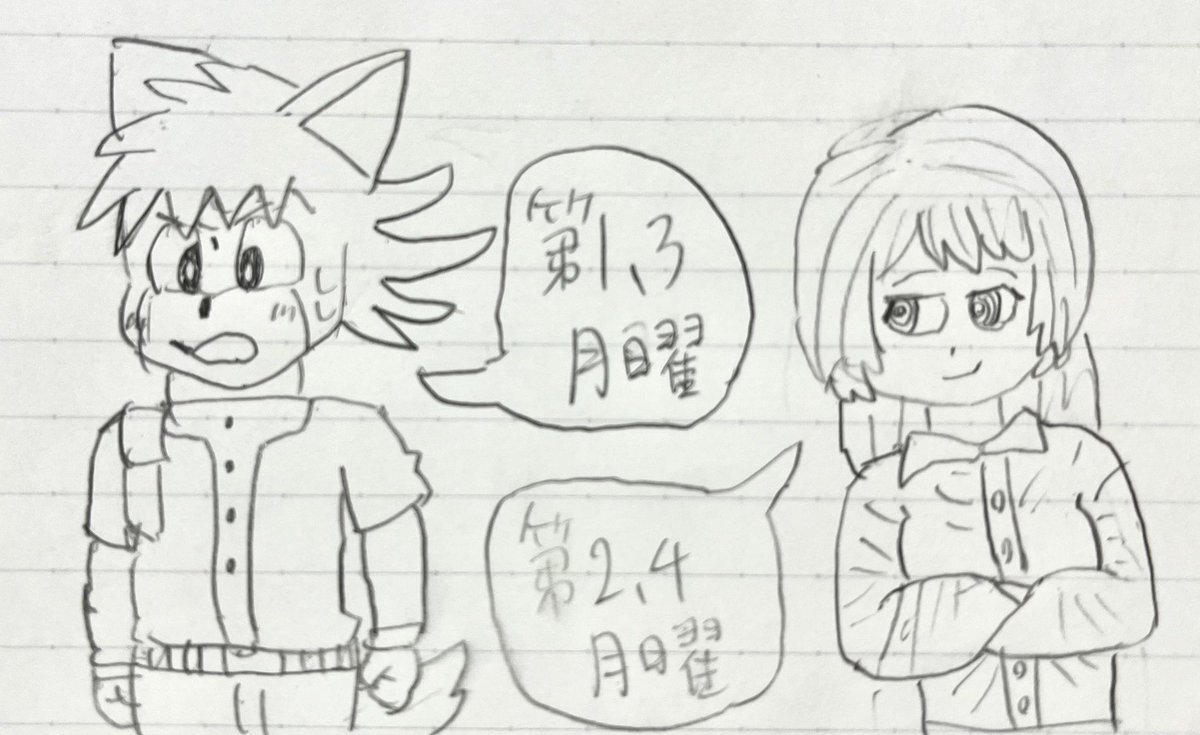 第1、3
月曜
第2、4
月曜